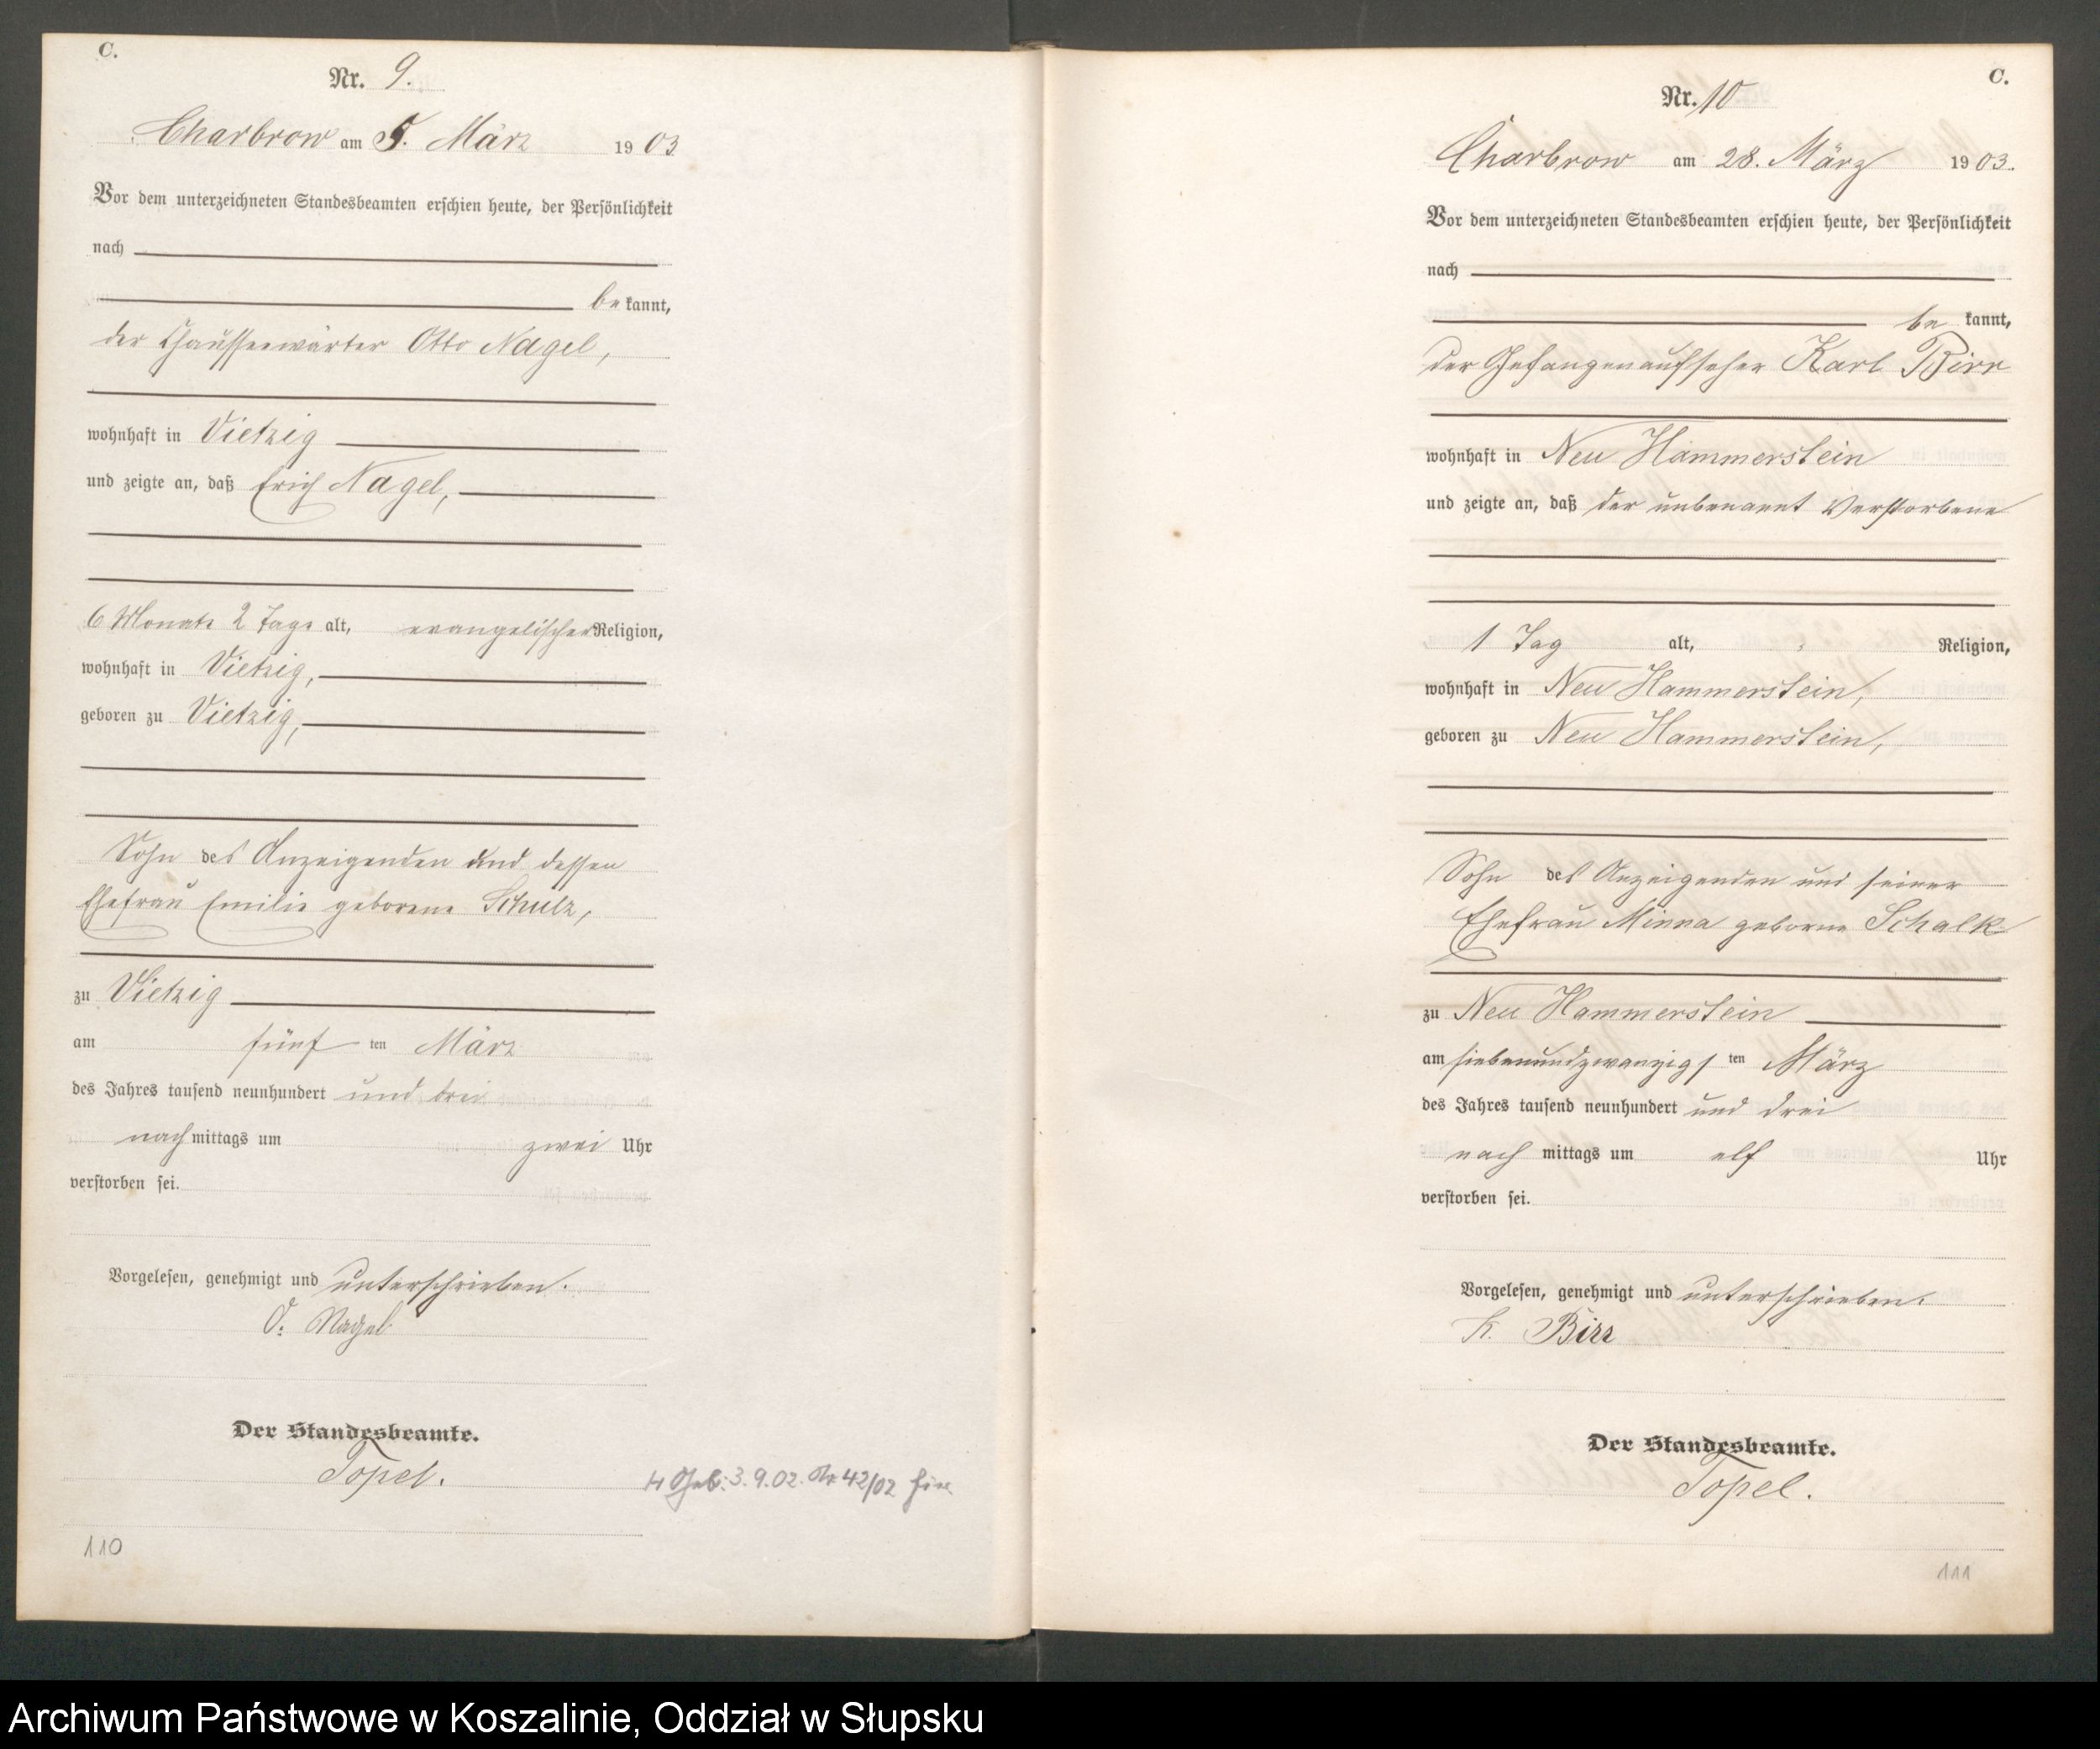 C.
Nr. 9.
Charbrow am 5. März 1903
Vor dem unterzeichneten Standesbeamten erschien heute, der Persönlichkeit
nach
bekannt,
der Chausseewärter Otto Nagel,
wohnhaft in Vietzig
und zeigte an, daß Erich Nagel,
6 Monate 2 Tage alt, evangelischer Religion,
wohnhaft in Vietzig,
geboren zu Vietzig,
Sohn des Anzeigenden und dessen
Ehefrau Emilie geborene Schulz,
zu Vietzig
am fünf ten März
des Jahres tausend neunhundert und drei
nachmittags um zwei Uhr
verstorben sei.
Vorgelesen, genehmigt und unterschrieben.
O. Nagel
Der Standesbeamte.
Topel.
Geb. 3.9.02. Nr 42/02 hier
110
C.
Nr. 10
Charbrow am 28. März 1903.
Vor dem unterzeichneten Standesbeamten erschien heute, der Persönlichkeit
nach
be kannt,
der Gefangenaufseher Karl Birr
wohnhaft in Neu Hammerstein
und zeigte an, daß der unbenannt Verstorbene
1 Tag alt, Religion,
wohnhaft in Neu Hammerstein,
geboren zu Neu Hammerstein,
Sohn des Anzeigenden und seiner
Ehefrau Minna geborne Schalk
zu Neu Hammerstein
am siebenundzwanzigs ten März
des Jahres tausend neunhundert und drei
nach mittags um elf Uhr
verstorben sei.
Vorgelesen, genehmigt und unterschrieben.
K. Birr
Der Standesbeamte.
Topel.
111
Archiwum Państwowe w Koszalinie, Oddział w Słupsku